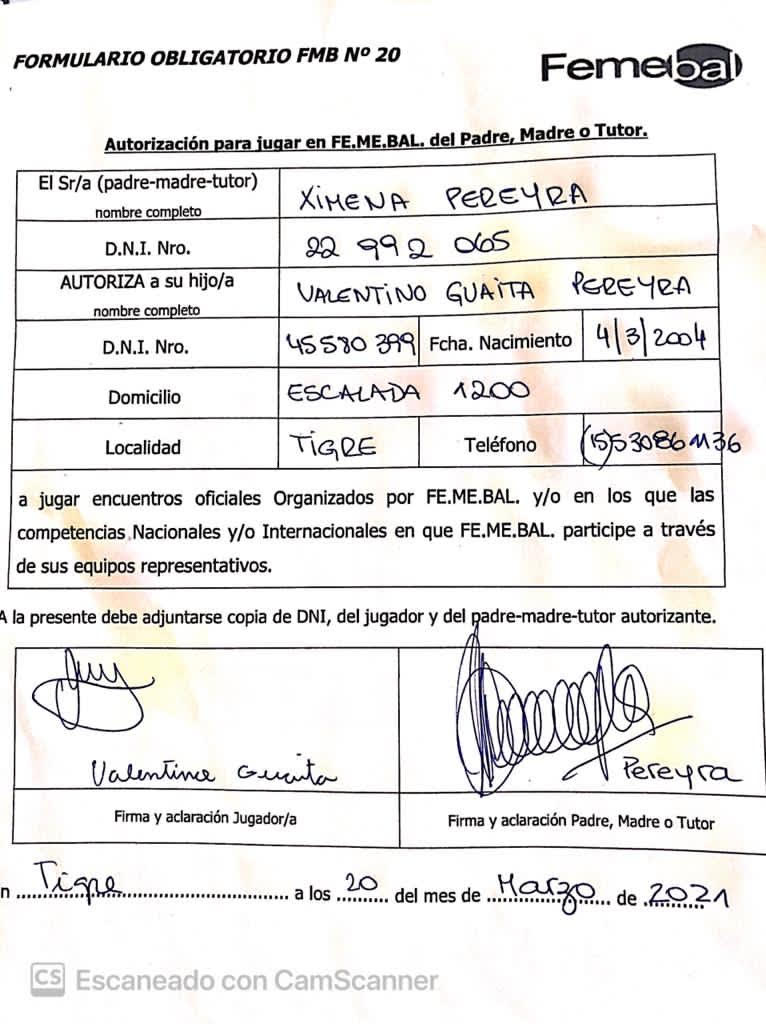 FORMULARIO OBLIGATORIO FMB Nº 20
Femebal
Autorización para jugar en FE.ME.BAL. del Padre, Madre o Tutor.
El Sr/a (padre-madre-tutor)
nombre completo
XIMENA PEREYRA
D.N.I. Nro.
22 992 065
AUTORIZA a su hijo/a
nombre completo
VALENTINO GUAITA PEREYRA
D.N.I. Nro.
45580 399
Fcha. Nacimiento
4/3/2004
Domicilio
ESCALADA 1200
Localidad
TIGRE
Teléfono
(15)530861136
a jugar encuentros oficiales Organizados por FE.ME.BAL. y/o en los que las
competencias Nacionales y/o Internacionales en que FE.ME.BAL. participe a través
de sus equipos representativos.
A la presente debe adjuntarse copia de DNI, del jugador y del padre-madre-tutor autorizante.
Valentino Guaita
Pereyra
Firma y aclaración Jugador/a
Firma y aclaración Padre, Madre o Tutor
n Tigre a los 20 del mes de Marzo de 2021
CS Escaneado con CamScanner